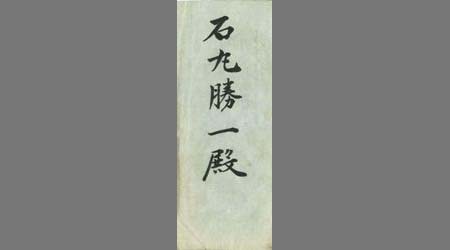 石丸勝一殿